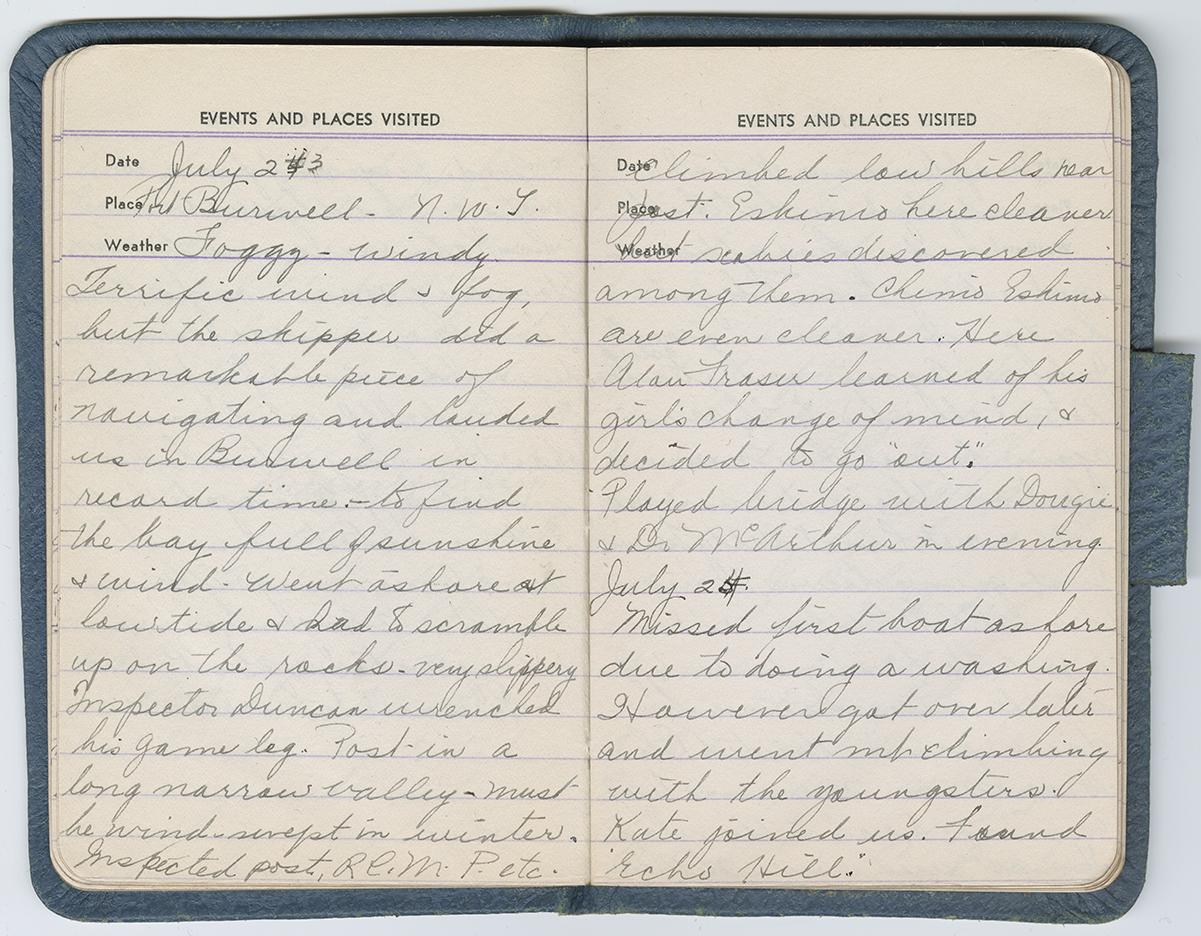 EVENTS AND PLACES VISITED
Date July 23
Place Port Burwell - N.W.T.
Weather Foggy - windy.
Terrific wind & fog,
but the skipper did a
remarkable piece of
navigating and landed
us in Burwell in
record time. - to find
the bay full of sunshine
& wind. Went ashore at
low tide & had to scramble
up on the rocks - very slippery
Inspector Duncan wrenched
his game leg. Post in a
long narrow valley - must
be wind-swept in winter.
Inspected post, R.C.M.P. etc.
EVENTS AND PLACES VISITED
Date Climbed low hills near
Place post. Eskimo here cleaner
Weather but scabies discovered
among them. Chimo Eskimo
are even cleaner. Here
Alan Fraser learned of his
girl's change of mind, &
decided to go "out".
Played bridge with Dougie
& Dr McArthur in evening.
July 24.
Missed first boat ashore
due to doing a washing.
However got over later
and went mt. climbing
with the youngsters.
Kate joined us. Found
"Echo Hill."